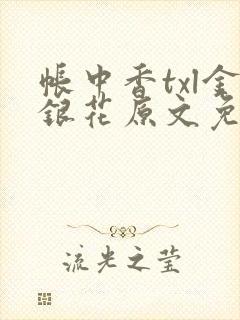 帐中香txl金
銀花原文免
流光之莹